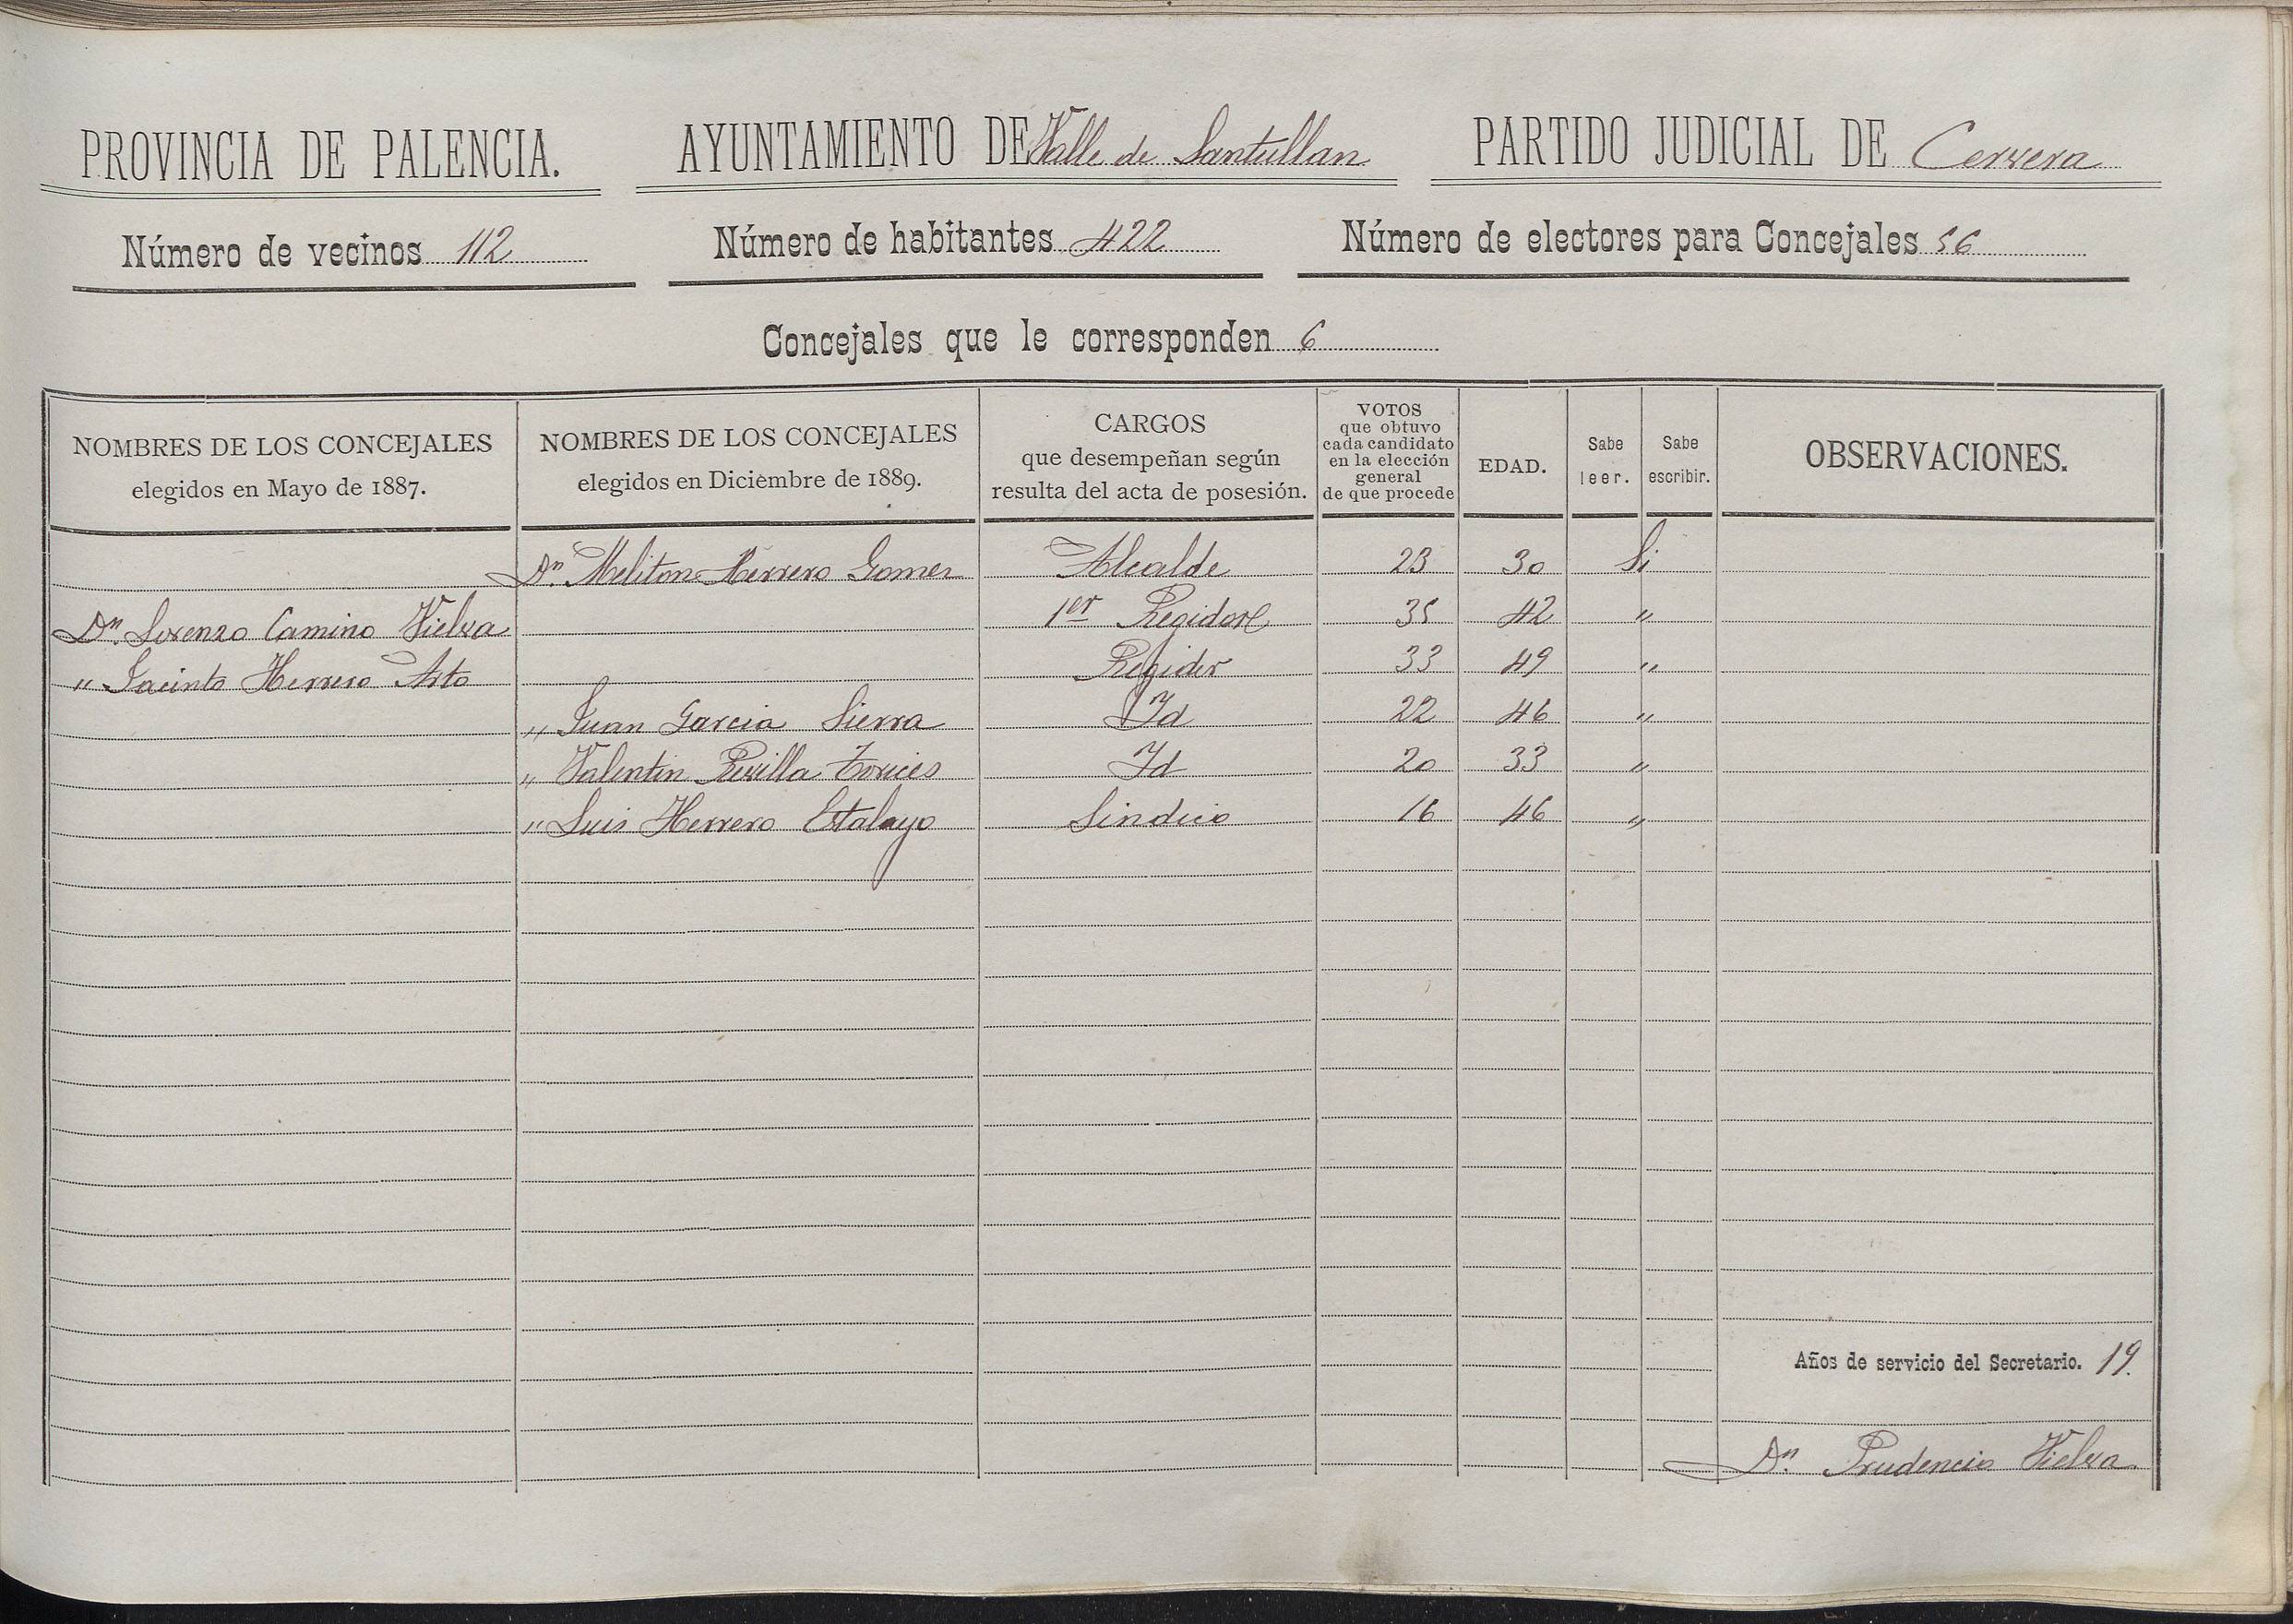 PROVINCIA DE PALENCIA. AYUNTAMIENTO DE Valle de Santullan PARTIDO JUDICIAL DE Cervera
Número de vecinos 112 Número de habitantes 422 Número de electores para Concejales 56
Concejales que le corresponden 6
NOMBRES DE LOS CONCEJALES
elegidos en Mayo de 1887.
NOMBRES DE LOS CONCEJALES
elegidos en Diciembre de 1889.
CARGOS
que desempeñan según
resulta del acta de posesión.
VOTOS
que obtuvo
cada candidato
en la elección
general
de que procede
EDAD.
Sabe
leer.
Sabe
escribir.
OBSERVACIONES.
Dn. Meliton Herrero Gomez Alcalde 23 30 Si
Dn. Lorenzo Camino Vielva 1er Regidor 35 42 "
" Jacinto Herrero Arto Regidor 33 49 "
" Juan Garcia Sierra Id 22 46 "
" Valentin Revilla Torices Id 20 33 "
" Luis Herrero Estalayo Sindico 16 46 "
Años de servicio del Secretario. 19.
Dn. Prudencio Vielva